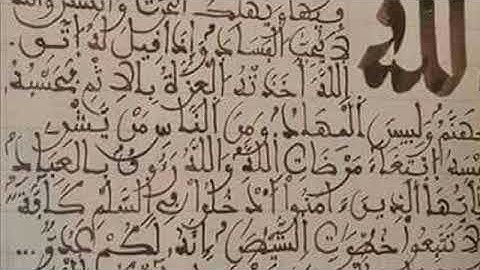 الله
فيها ويهلك الحرث والنسل والله
لا يحب الفساد وإذا قيل له اتق
الله أخذته العزة بالاثم فحسبه
جهنم ولبيس المهاد ومن الناس من يشرى
نفسه ابتغاء مرضات الله والله رءوف بالعباد
يأيها الذين ءامنوا ادخلوا فى السلم كافة
ولا تتبعوا خطوت الشيطن إنه لكم عدو...